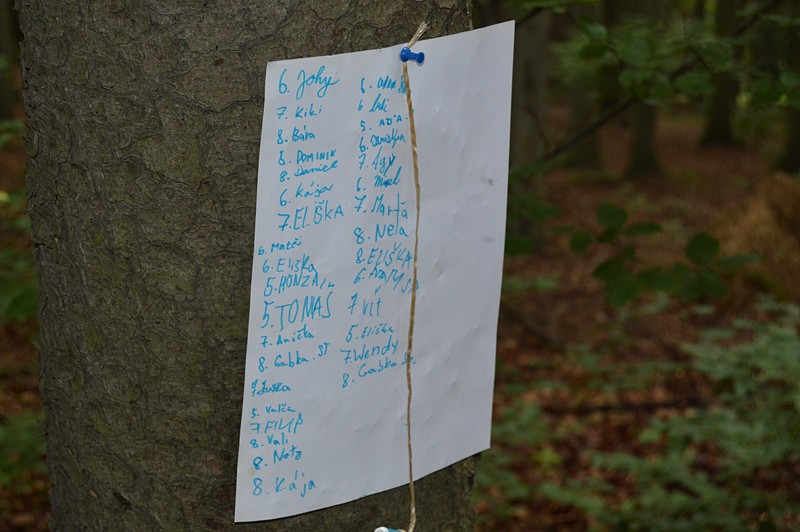 6. Johy
7. Kiki
8. Bára
8. DOMINIK
8. Daniel
6. Kája
7. ELIŠKA
6. Matěj
6. Eliška
5. HONZA
5. TOMÁŠ
7. Anička
8. Gabka. ST
7. Zuska
5. Valča
7 FILIP
8. Vali
8. Naty
8. Kája
6.
6.
5.
6.
7.
6.
7. Marťa
8. Nela
8. ELIŠKA
6.
7 Vít
5. Eliška
7. Wendy
8. Gabka